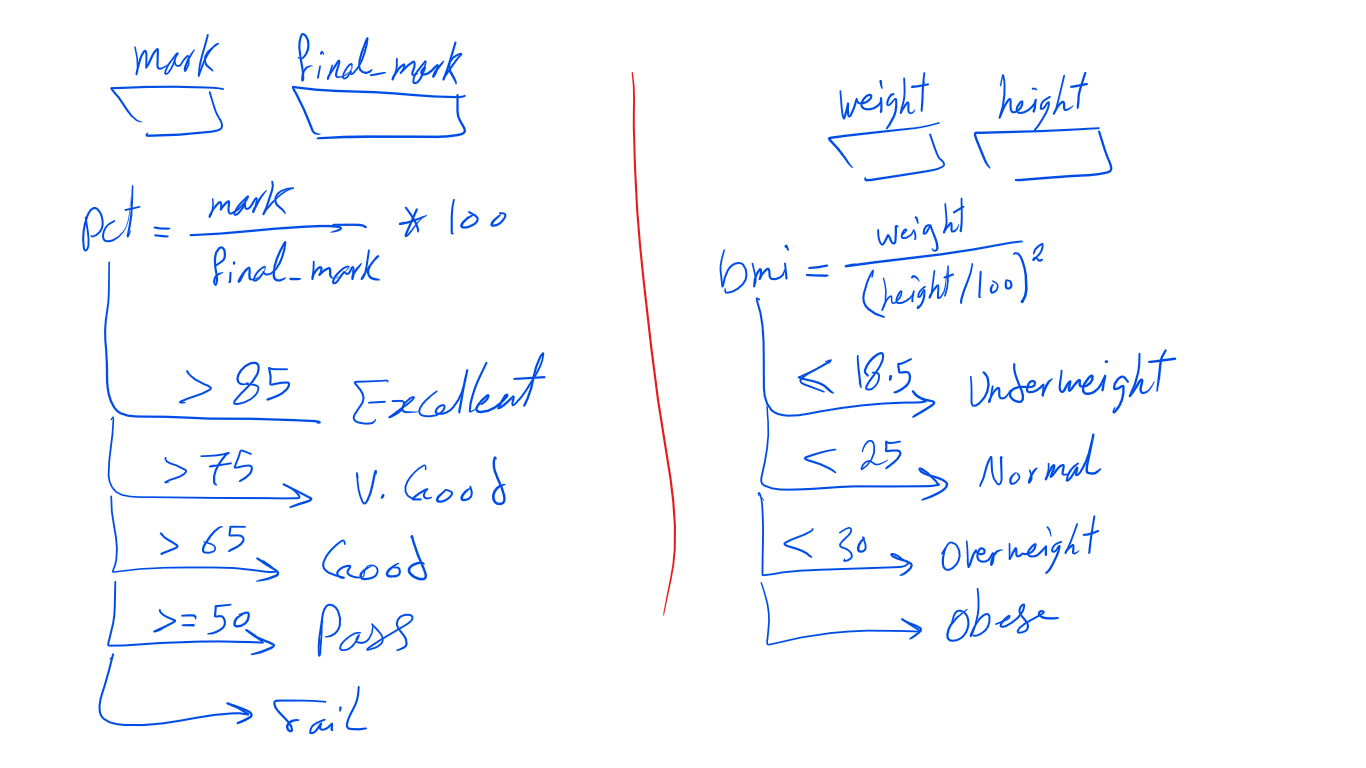 mark final_mark
pct = mark / final_mark * 100
> 85 Excellent
> 75 V. Good
> 65 Good
>= 50 Pass
Fail
weight height
bmi = weight / (height/100)²
< 18.5 Underweight
< 25 Normal
< 30 Overweight
Obese